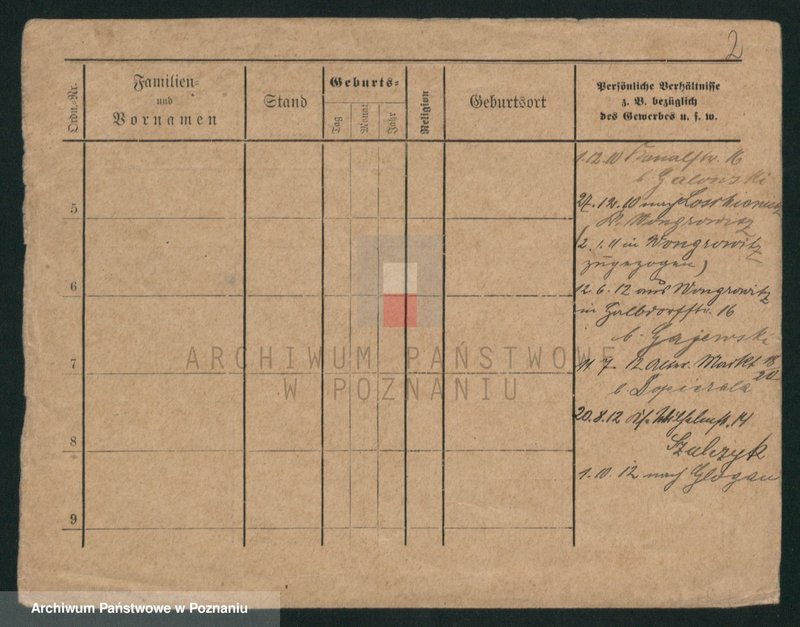 2
Ordn.-Nr.
Familien-
und
Vornamen
Stand
Geburts-
Tag
Monat
Jahr
Religion
Geburtsort
Persönliche Verhältnisse
z. B. bezüglich
des Gewerbes u. s. w.
1.12.10 16
b. Galonski
5
27.12.10 nach
Kr. Wongrowitz
2.1.11 in Wongrowitz
zugezogen)
6
12.6.12 aus Wongrowitz
in Halbdorfstr. 16
b. Gajewski
7
11.7.12 Alter Markt 18
20
b. Dopierala
20.8.12 14
8
Szulczyk
1.10.12 nach Glogau
9
ARCHIWUM PAŃSTWOWE
W POZNANIU
Archiwum Państwowe w Poznaniu